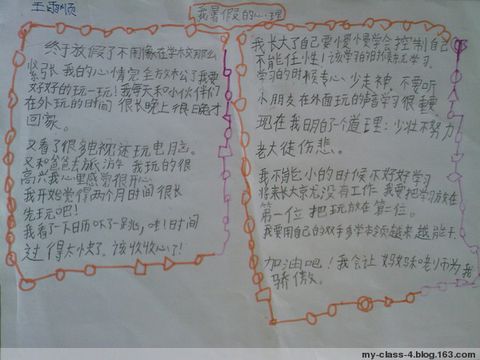 王雨顺
我暑假的心理
终于放假了不用像在学校那么
紧张,我的心情完全放松了我要
好好的玩一玩!我每天和小伙伴们
在外玩的时间很长晚上很晚才
回家。
又看了很多电视!还玩电月台。
又和爸爸去旅游 我玩的很
高兴我心里感觉很开心
我开始觉得两个月时间很长
先玩吧!
我看了一下日历吓了一跳,哇!时间
过得太快了。该收收心了!
我长大了自己要慢慢学会控制自己
不能任性!该学习的时候就学习。
学习的时候专心 少走神,不要听
小朋友在外面玩的声音学习很重要
现在我明白了个道理:少壮不努力
老大徒伤悲。
我不能小的时候不好好学习
将来长大京尤没有工作。我要把学习放在
第一位 把玩放在第二位。
我要用自己的双手多学本领越来越能干。
加油吧!我会让妈妈
骄傲。
my-class-4.blog.163.com